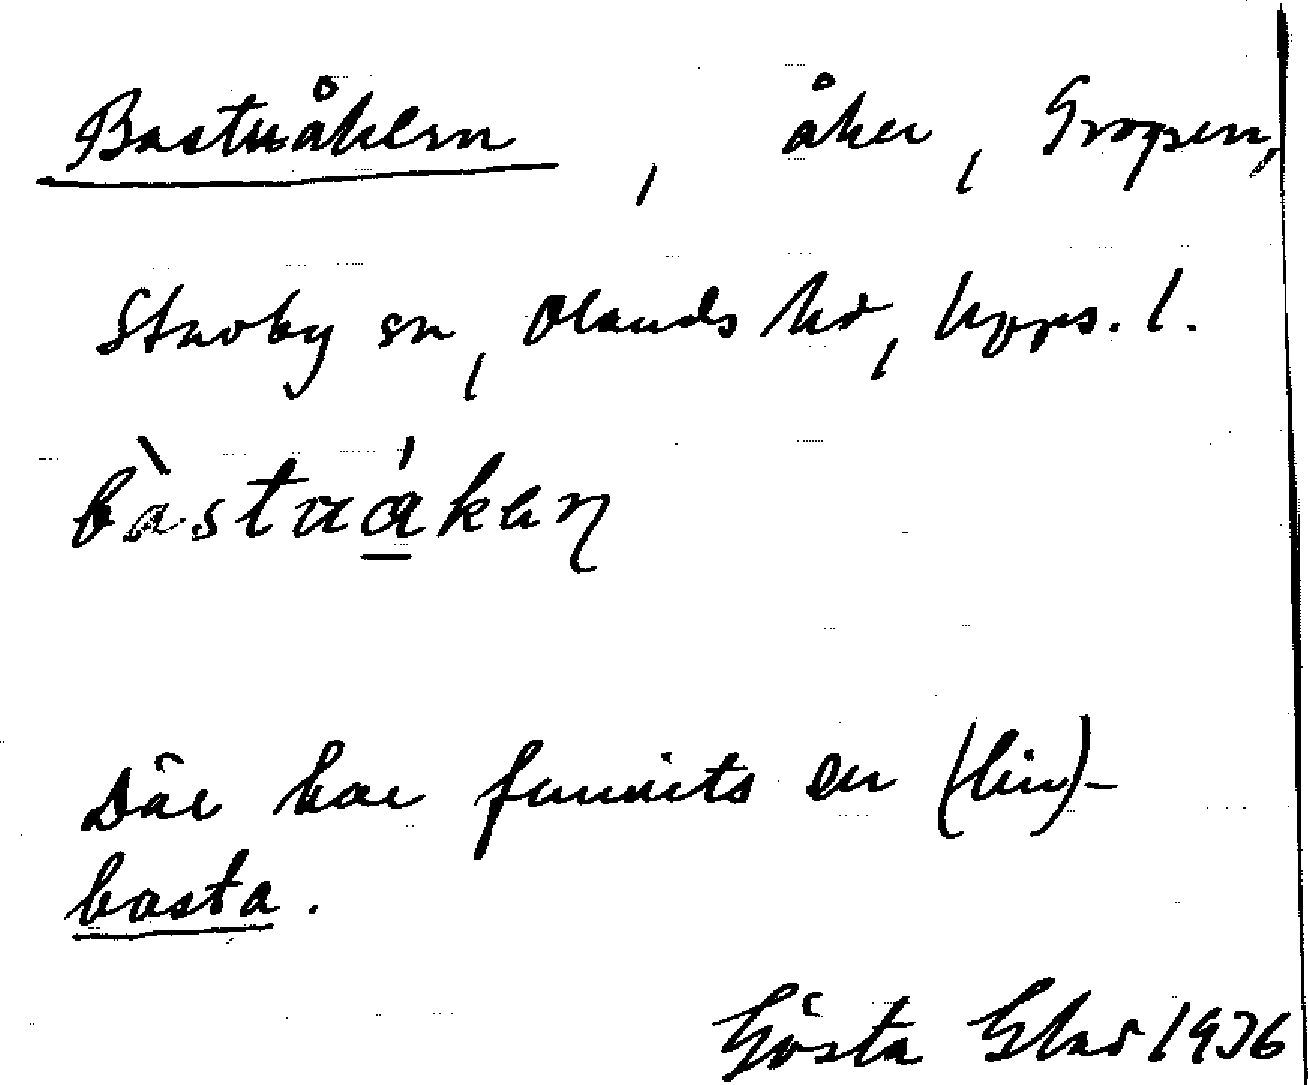 Bastuåkern, åker, Gropen,
Stavby sn, Olands hd, Upps. l.
bàstuákeɳ
Där har funnits en (lin)-
basta.
Gösta Elas 1936